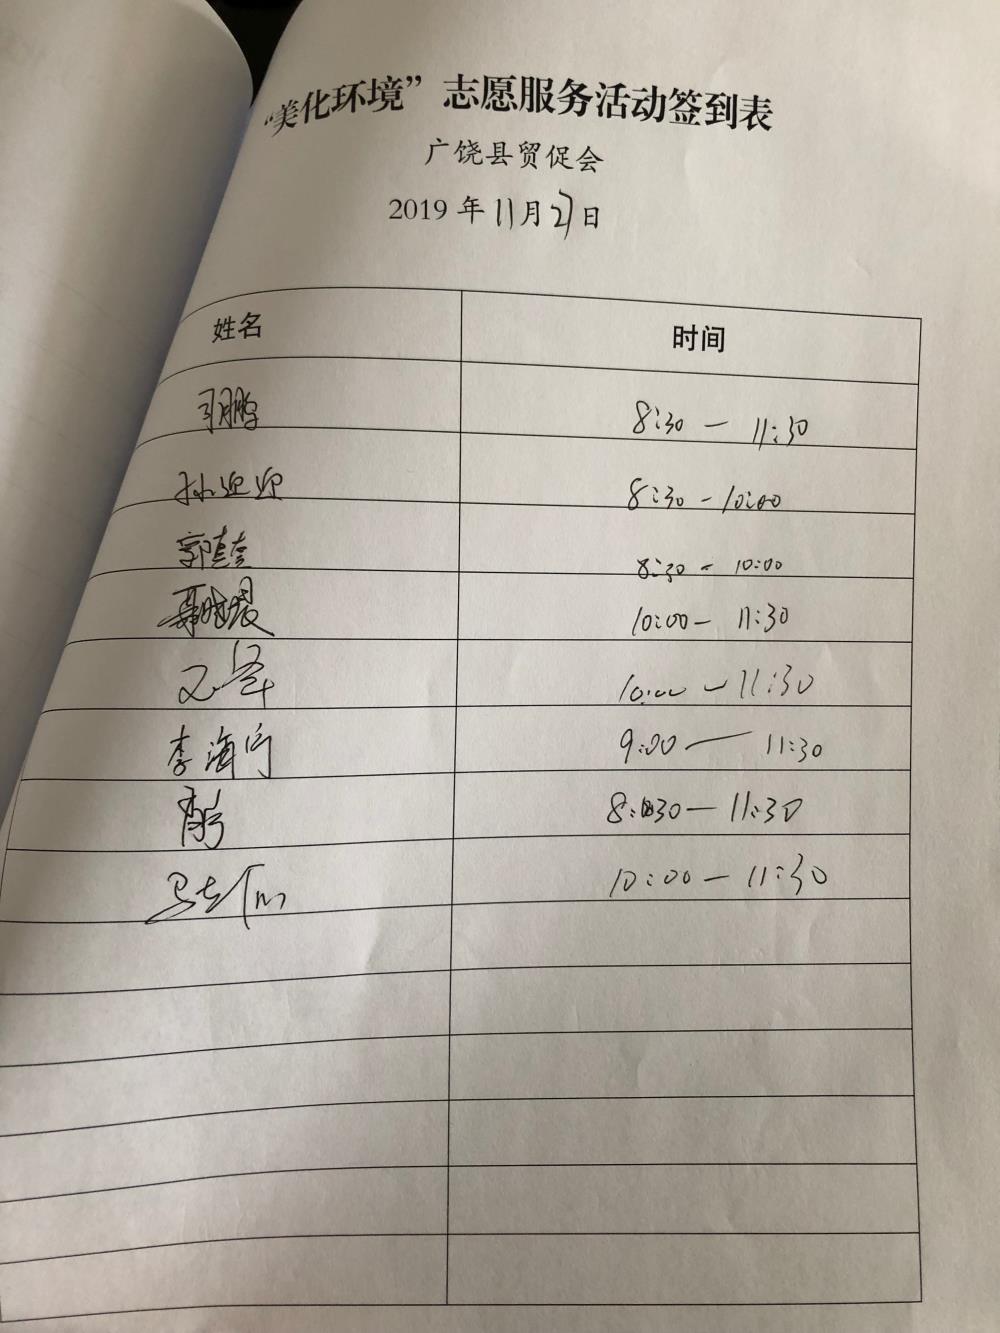 “美化环境”志愿服务活动签到表
广饶县贸促会
2019年11月27日
姓名 时间
8:30 — 11:30
孙迎迎 8:30 - 10:00
郭 8:30 - 10:00
晨 10:00 - 11:30
10:00 - 11:30
李海 9:00 — 11:30
8:30 — 11:30
10:00 — 11:30